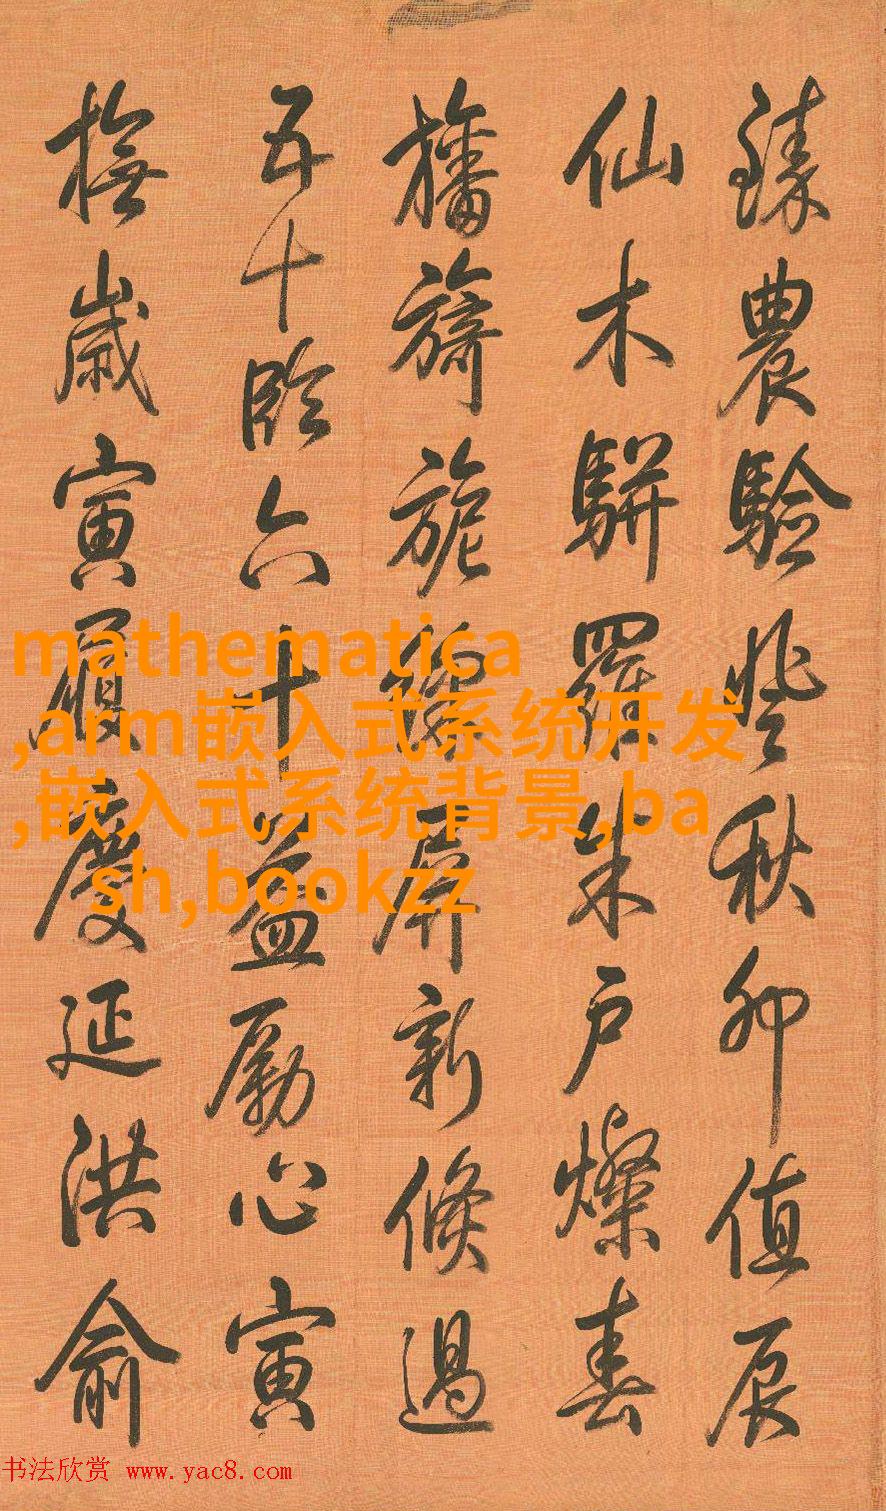 臻農驗登秋卯值辰
仙木駢羅朱戶燦春
旛旖旎綵屏新倏過
五十臨六十益勵心寅
撫歲寅履慶延洪俞
mathematica
,arm嵌入式系统开发
,嵌入式系统背景,ba
sh,bookzz
书法欣赏 www.yac8.com